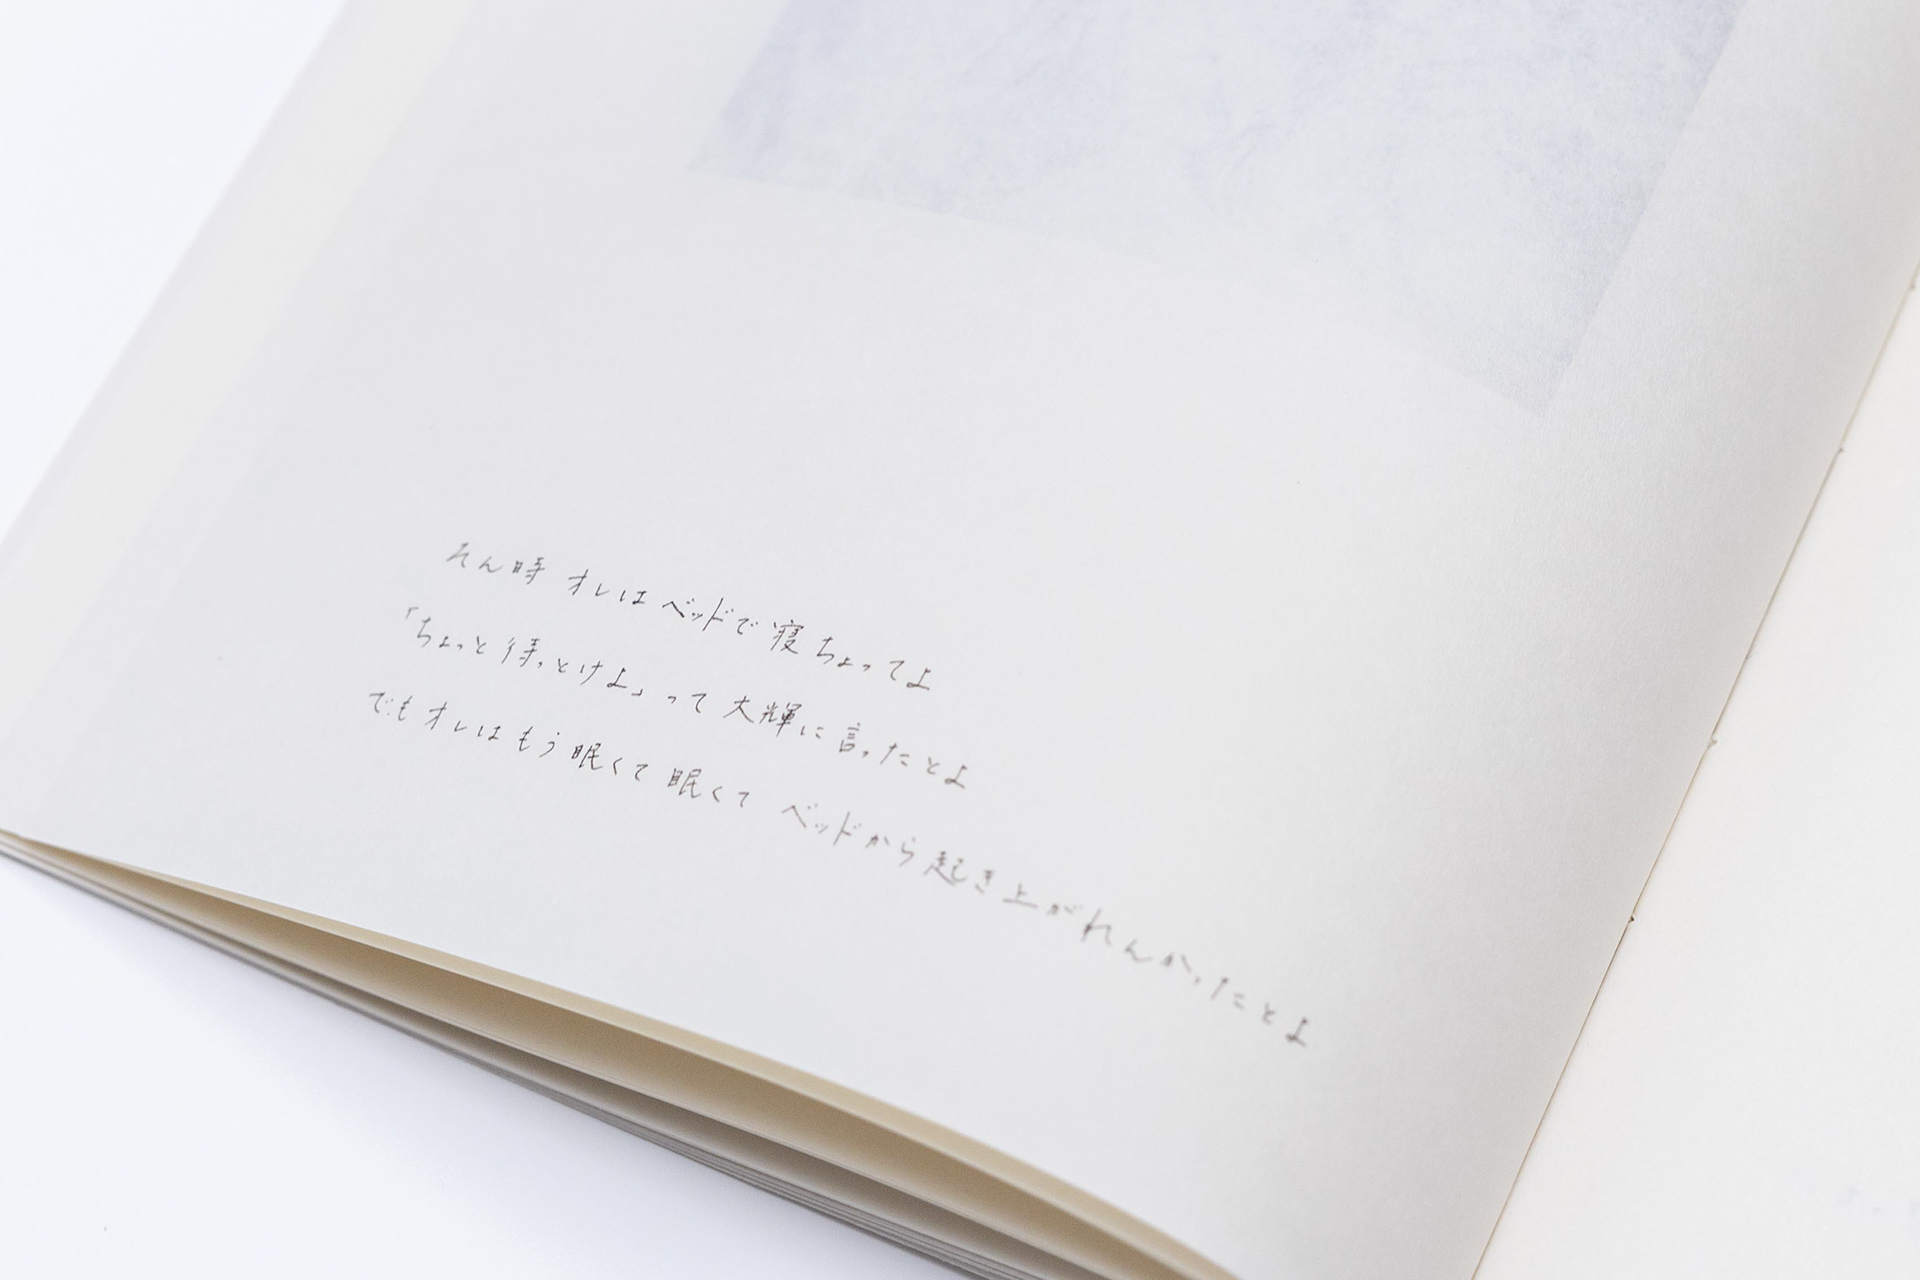 そん時 オレは ベッドで 寝ちょってよ
「ちょっと待っとけよ」って 大輝に言ったとよ
でも オレは もう 眠くて 眠くて ベッドから 起き上がれんかったとよ